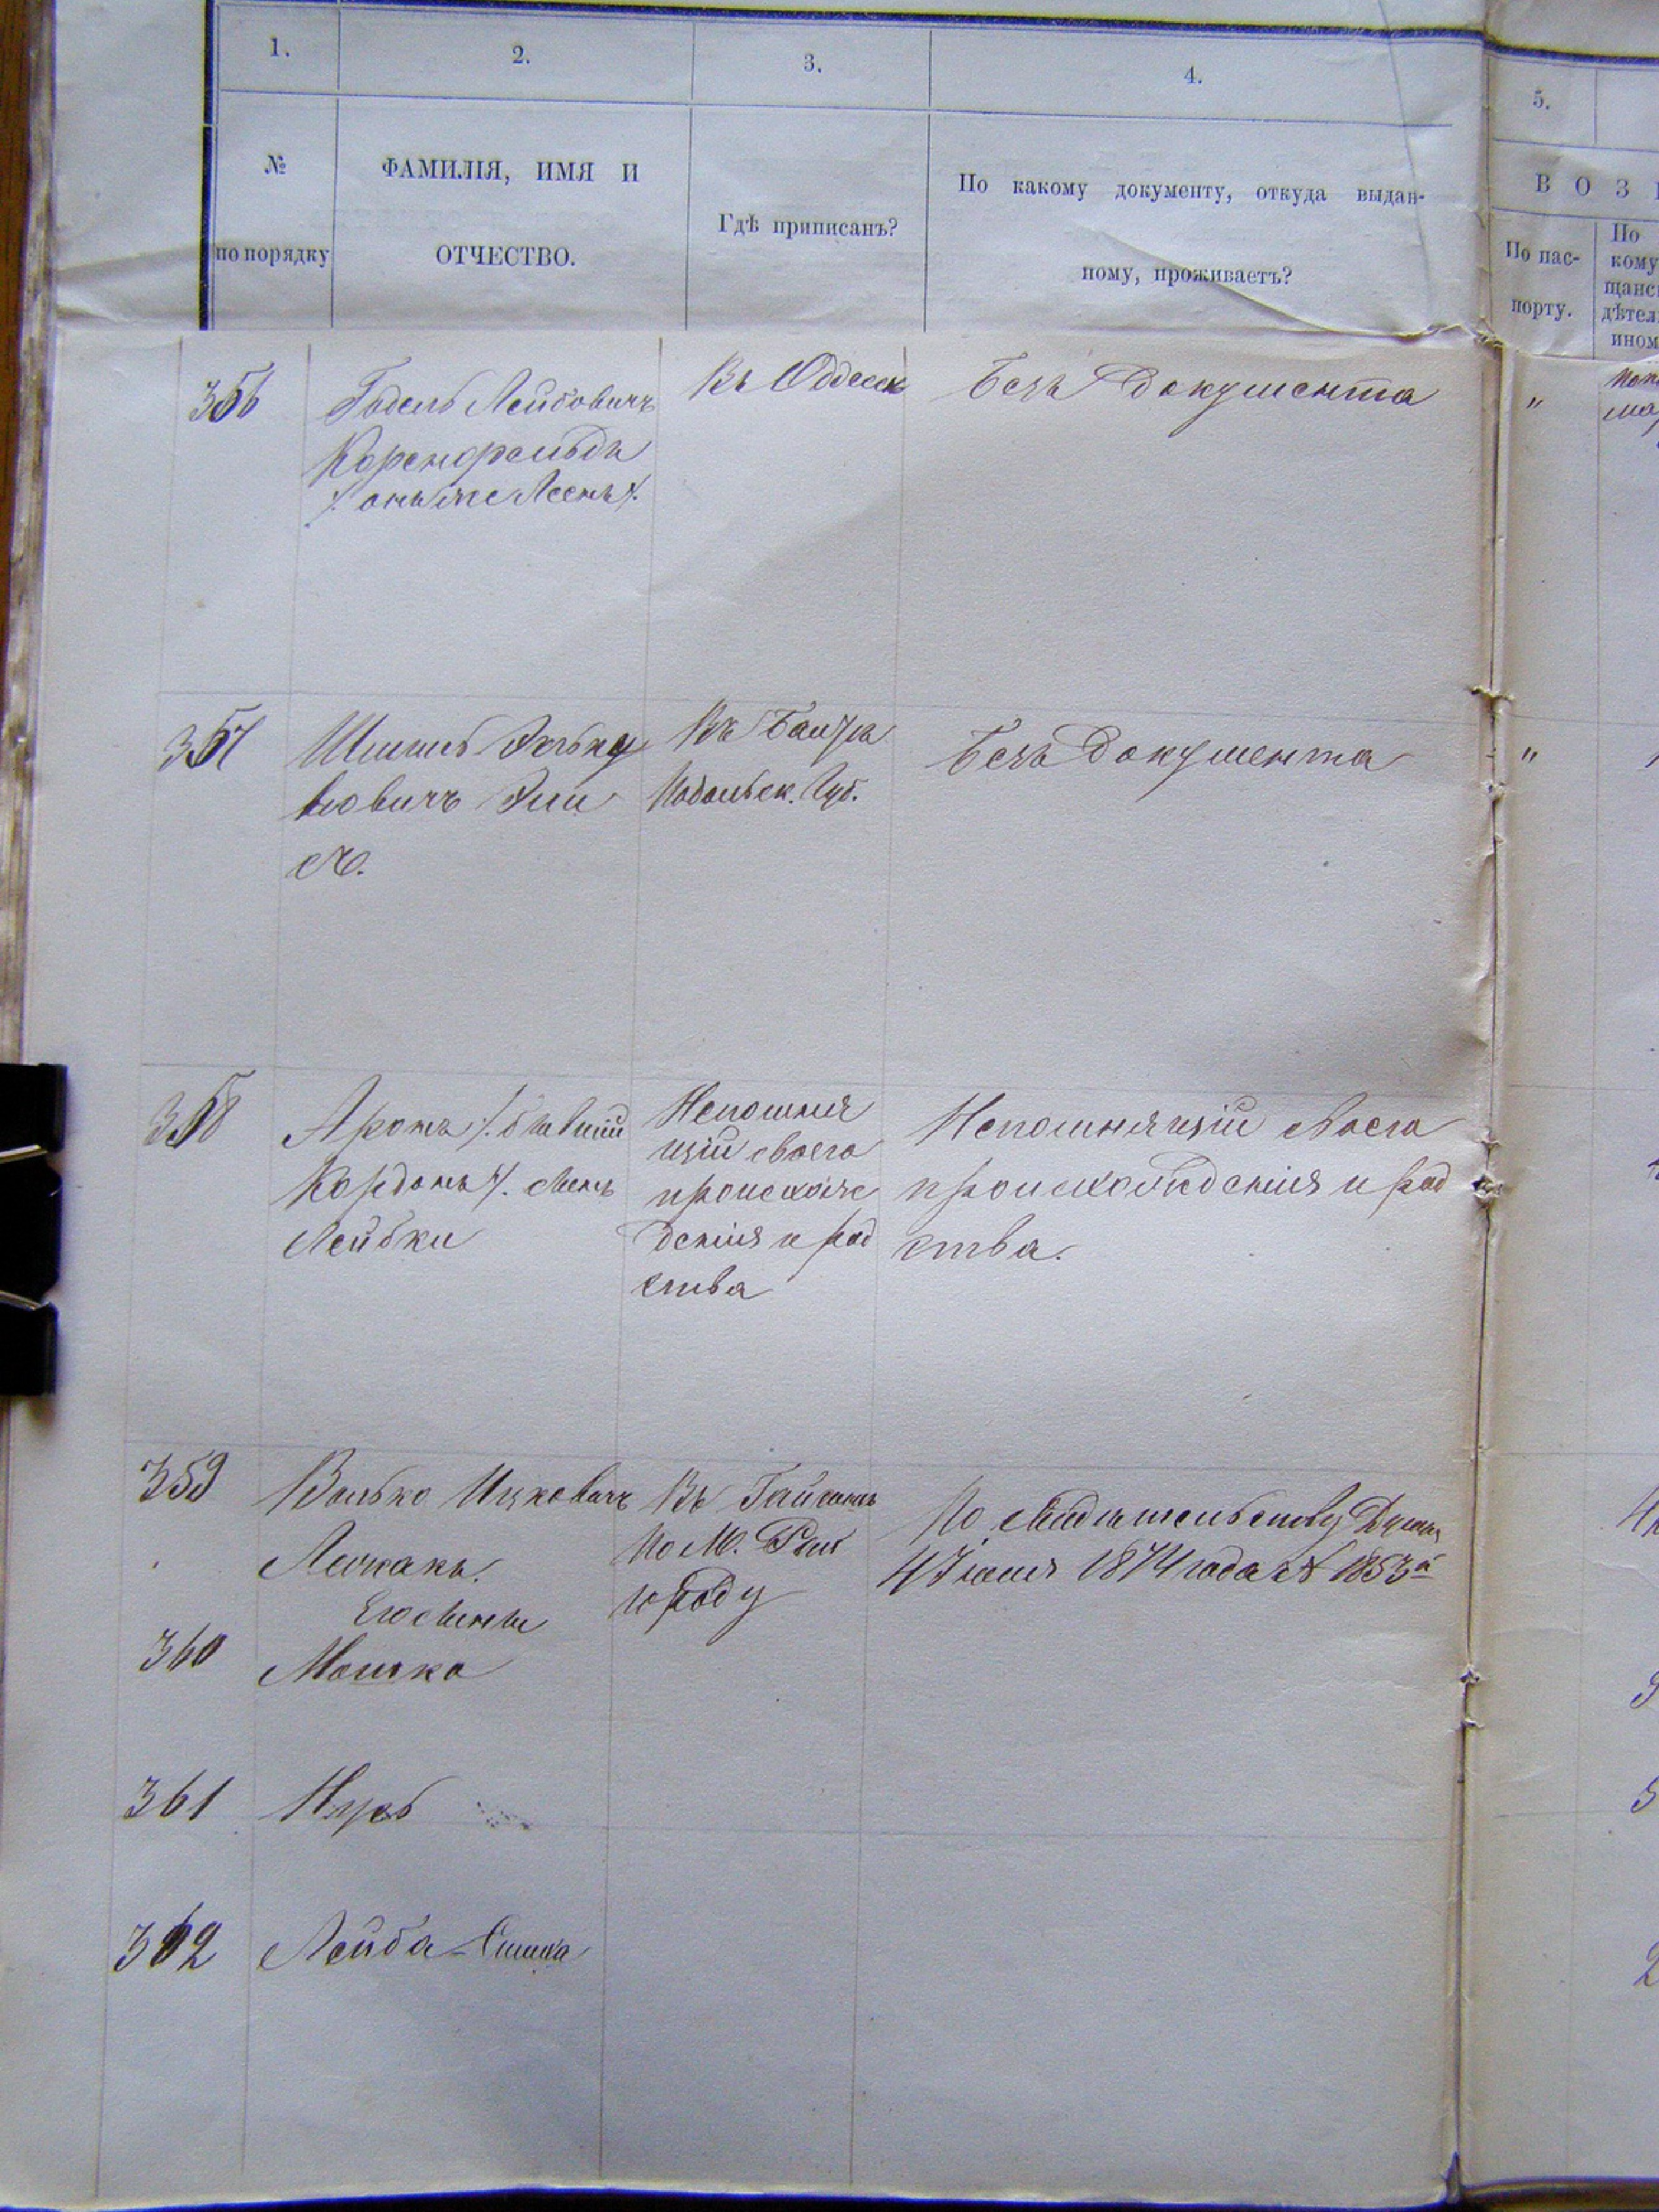 1.
2.
3.
4.
5.
№
по порядку
ФАМИЛІЯ, ИМЯ И
ОТЧЕСТВО.
Гдѣ приписанъ?
По какому документу, откуда выдан-
ному, проживаетъ?
В О З
По пас-
порту.
По
кому
щанс
дѣтел
ином
356
Годель Лейбовичъ
Коренфельдъ
онъ же
Въ Одессѣ
Безъ документа
"
357
Шмиль
Въ Балтѣ
Подольск. Губ.
Безъ документа
"
358
Аронъ /: бывшій
Кордонъ :/. сынъ
Лейбки
Непомня
щій своего
происхож
денія и род
ства
Непомнящій своего
происхожденія и род
ства.
359
Волько Ицковичъ
Его сыновья
Въ Гайсинѣ
По М.
городу
По свидѣтельству Думы
4 Іюня 1874 года № 1853й
360
Мошко
361
362
Лейба-Симха